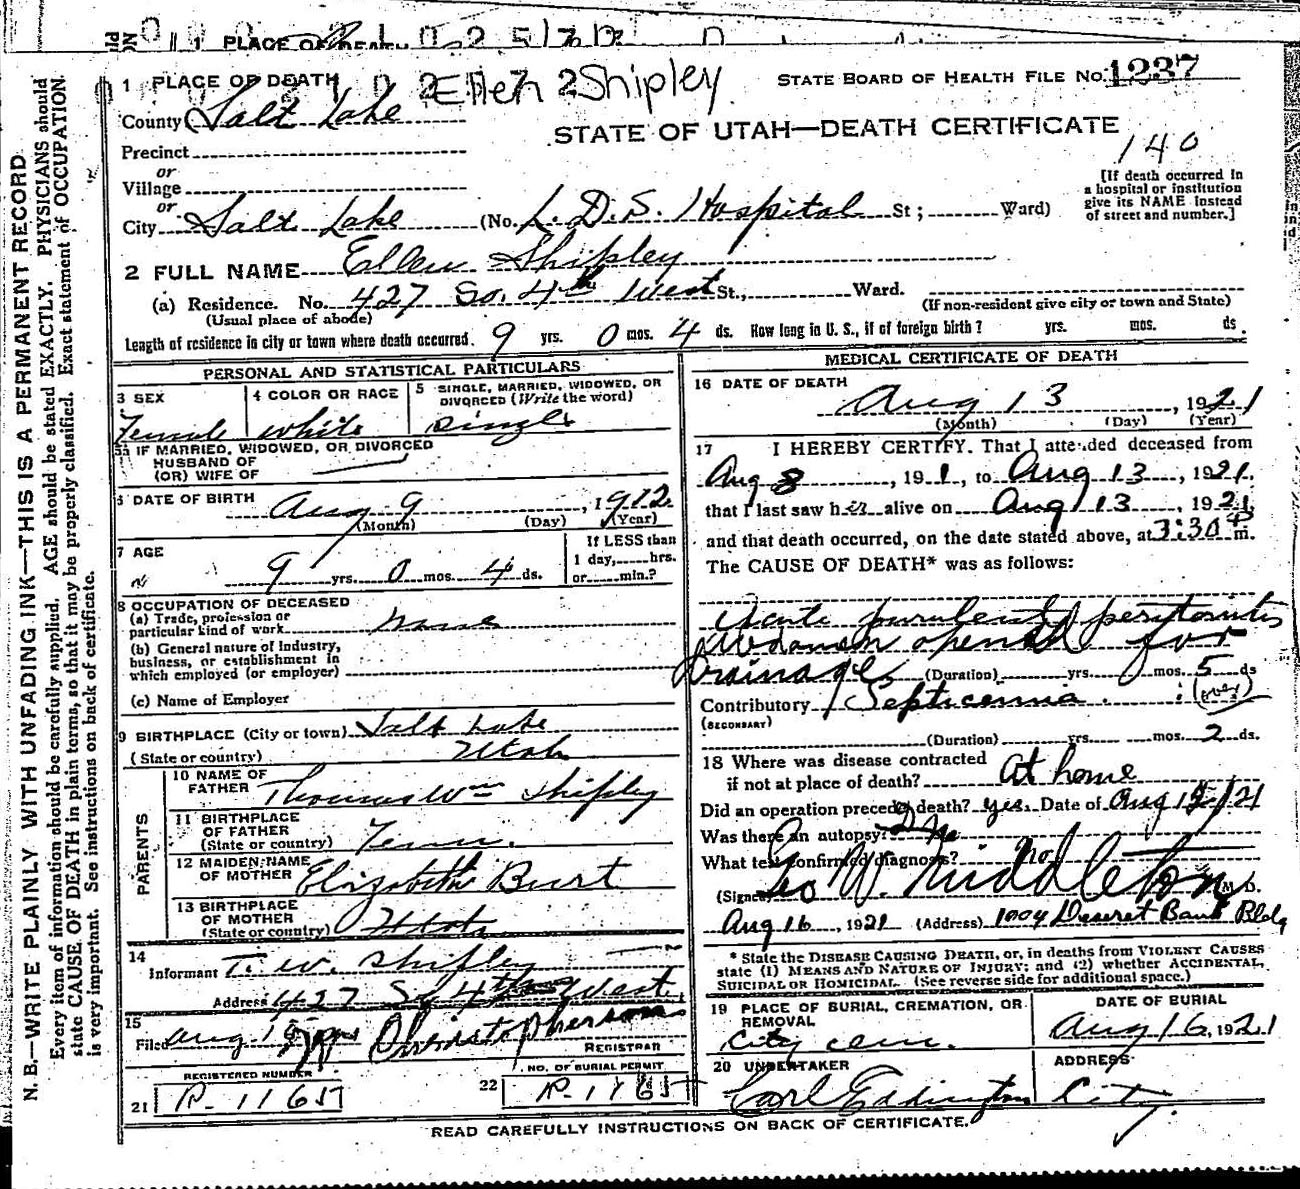 1 PLACE OF DEATH
Ellen Shipley
STATE BOARD OF HEALTH FILE No. 1237
County Salt Lake
STATE OF UTAH—DEATH CERTIFICATE
140
Precinct
or
Village
or
City Salt Lake (No. L. D. S. Hospital St; Ward)
[If death occurred in
a hospital or institution
give its NAME instead
of street and number.]
2 FULL NAME Ellen Shipley
(a) Residence. No. 427 So. 4th West St., Ward.
(Usual place of abode)
(If non-resident give city or town and State)
Length of residence in city or town where death occurred. 9 yrs. 0 mos. 4 ds. How long in U. S., if of foreign birth? yrs. mos. ds
PERSONAL AND STATISTICAL PARTICULARS
3 SEX
Female
4 COLOR OR RACE
white
5 SINGLE, MARRIED, WIDOWED, OR
DIVORCED (Write the word)
single
5a IF MARRIED, WIDOWED, OR DIVORCED
HUSBAND OF
(OR) WIFE OF
6 DATE OF BIRTH Aug 9, 1912
(Month) (Day) (Year)
7 AGE
9 yrs. 0 mos. 4 ds.
If LESS than
1 day, hrs.
or min.?
8 OCCUPATION OF DECEASED
(a) Trade, profession or
particular kind of work none
(b) General nature of Industry,
business, or establishment in
which employed (or employer)
(c) Name of Employer
9 BIRTHPLACE (City or town) Salt Lake
(State or country) Utah
PARENTS
10 NAME OF
FATHER Thomas Wm Shipley
11 BIRTHPLACE
OF FATHER
(State or country) Tenn.
12 MAIDEN NAME
OF MOTHER Elizabeth Burt
13 BIRTHPLACE
OF MOTHER
(State or country) Utah
14
Informant T. W. Shipley
Address 427 So 4th West
15
Filed Aug Christopherson
REGISTRAR
REGISTERED NUMBER
21 R-1165
22 NO. OF BURIAL PERMIT
R-1165
MEDICAL CERTIFICATE OF DEATH
16 DATE OF DEATH
Aug 13, 1921
(Month) (Day) (Year)
17 I HEREBY CERTIFY. That I attended deceased from
Aug 8, 191, to Aug 13, 1921.
that I last saw her alive on Aug 13, 1921,
and that death occurred, on the date stated above, at 3:30 P m.
The CAUSE OF DEATH* was as follows:
Acute purulent peritonitis
Abdomen opened for
Drainage (Duration) yrs. mos. 5 ds
Contributory Septicemia. (over)
(SECONDARY)
(Duration) yrs. mos. 2 ds.
18 Where was disease contracted
if not at place of death? At home
Did an operation precede death? yes. Date of Aug 12/21
Was there an autopsy? no
What test confirmed diagnosis? no
(Signed) Geo W. Middleton M. D.
Aug 16, 1921 (Address) 1004 Deseret Bank Bldg
* State the DISEASE CAUSING DEATH, or, in deaths from VIOLENT CAUSES
state (1) MEANS AND NATURE OF INJURY; and (2) whether ACCIDENTAL,
SUICIDAL OR HOMICIDAL. (See reverse side for additional space.)
19 PLACE OF BURIAL, CREMATION, OR
REMOVAL
City cem.
DATE OF BURIAL
Aug 16, 1921
20 UNDERTAKER
Earl Edington
ADDRESS
City.
READ CAREFULLY INSTRUCTIONS ON BACK OF CERTIFICATE.
N. B.—WRITE PLAINLY WITH UNFADING INK—THIS IS A PERMANENT RECORD
Every item of information should be carefully supplied. AGE should be stated EXACTLY. PHYSICIANS should
state CAUSE OF DEATH in plain terms, so that it may be properly classified. Exact statement of OCCUPATION
is very important. See instructions on back of certificate.